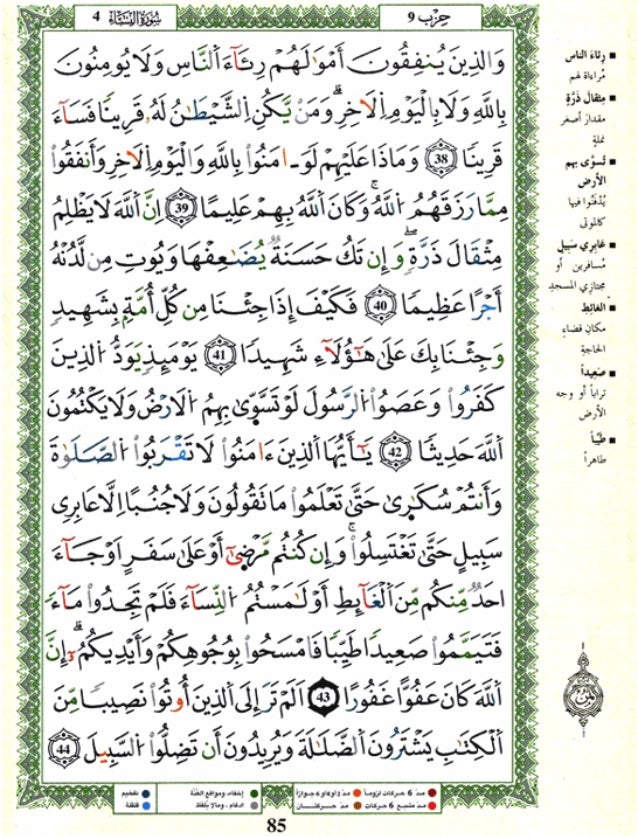 4 سُورَةُ النِّسَاءِ
حِزْب 9
وَالذِينَ يُنفِقُونَ أَمْوَٰلَهُمْ رِئَآءَ اَلنَّاسِ وَلَا يُومِنُونَ
بِاللَّهِ وَلَا بِالْيَوْمِ اِلَاخِرِ وَمَنْ يَّكُنِ اِلشَّيْطَٰنُ لَهُۥ قَرِينٗا فَسَآءَ
قَرِينٗا 38 وَمَاذَا عَلَيْهِمْ لَوَ ـ امَنُواْ بِاللَّهِ وَالْيَوْمِ اِلَاخِرِ وَأَنفَقُواْ
مِمَّا رَزَقَهُمُ اُللَّهُ وَكَانَ اَللَّهُ بِهِمْ عَلِيمًا 39 اِنَّ اَللَّهَ لَا يَظْلِمُ
مِثْقَالَ ذَرَّةٖ وَإِن تَكُ حَسَنَةٞ يُضَٰعِفْهَا وَيُوتِ مِن لَّدُنْهُ
أَجْرًا عَظِيمٗا 40 فَكَيْفَ إِذَا جِئْنَا مِن كُلِّ أُمَّةِۭ بِشَهِيدٖ
وَجِئْنَا بِكَ عَلَىٰ هَٰٓؤُلَآءِ شَهِيدٗا 41 يَوْمَئِذٖ يَوَدُّ اُلذِينَ
كَفَرُواْ وَعَصَوُاْ اُلرَّسُولَ لَوْ تَسَّوّ۪ىٰ بِهِمُ اُلَارْضُ وَلَا يَكْتُمُونَ
اَللَّهَ حَدِيثٗا 42 يَٰٓأَيُّهَا اَلذِينَ ءَامَنُواْ لَا تَقْرَبُواْ اُلصَّلَوٰةَ
وَأَنتُمْ سُكَٰر۪ىٰ حَتَّىٰ تَعْلَمُواْ مَا تَقُولُونَ وَلَا جُنُبًا اِلَّا عَابِرِي
سَبِيلٍ حَتَّىٰ تَغْتَسِلُواْ وَإِن كُنتُم مَّرْض۪ىٰٓ أَوْ عَلَىٰ سَفَرٍ اَوْ جَآءَ
احَدٞ مِّنكُم مِّنَ اَلْغَآئِطِ أَوْ لَٰمَسْتُمُ اُلنِّسَآءَ فَلَمْ تَجِدُواْ مَآءٗ
فَتَيَمَّمُواْ صَعِيدٗا طَيِّبٗا فَامْسَحُواْ بِوُجُوهِكُمْ وَأَيْدِيكُمُۥٓ إِنَّ
اَللَّهَ كَانَ عَفُوًّا غَفُورًا 43 اَلَمْ تَرَ إِلَى اَلذِينَ أُوتُواْ نَصِيبٗا مِّنَ
اَلْكِتَٰبِ يَشْتَرُونَ اَلضَّلَٰلَةَ وَيُرِيدُونَ أَن تَضِلُّواْ اُلسَّبِيلَ 44
رِئَاءَ الناس
مُراءاة لهم
مِثقالَ ذَرَّةٍ
مقدار أصغر
نملة
تُسَوَّى بهم
الأرض
يُدْفَنُوا فيها
كالموتى
عَابِري سَبِيل
مُسافرين أو
مجتازي المسجد
الغائِط
مكان قضاء
الحاجة
صَعِيداً
تراباً أو وجه
الأرض
طَيِّباً
طاهراً
ثمن
مدّ 6 حركات لزوماً
مدّ 2 أو 4 أو 6 جوازاً
إخفاء، ومواقع الغُنَّة
تفخيم
مدّ مشبع 6 حركات
مدّ حركتان
ادغام، ومالا يُلفظ
قلقلة
85